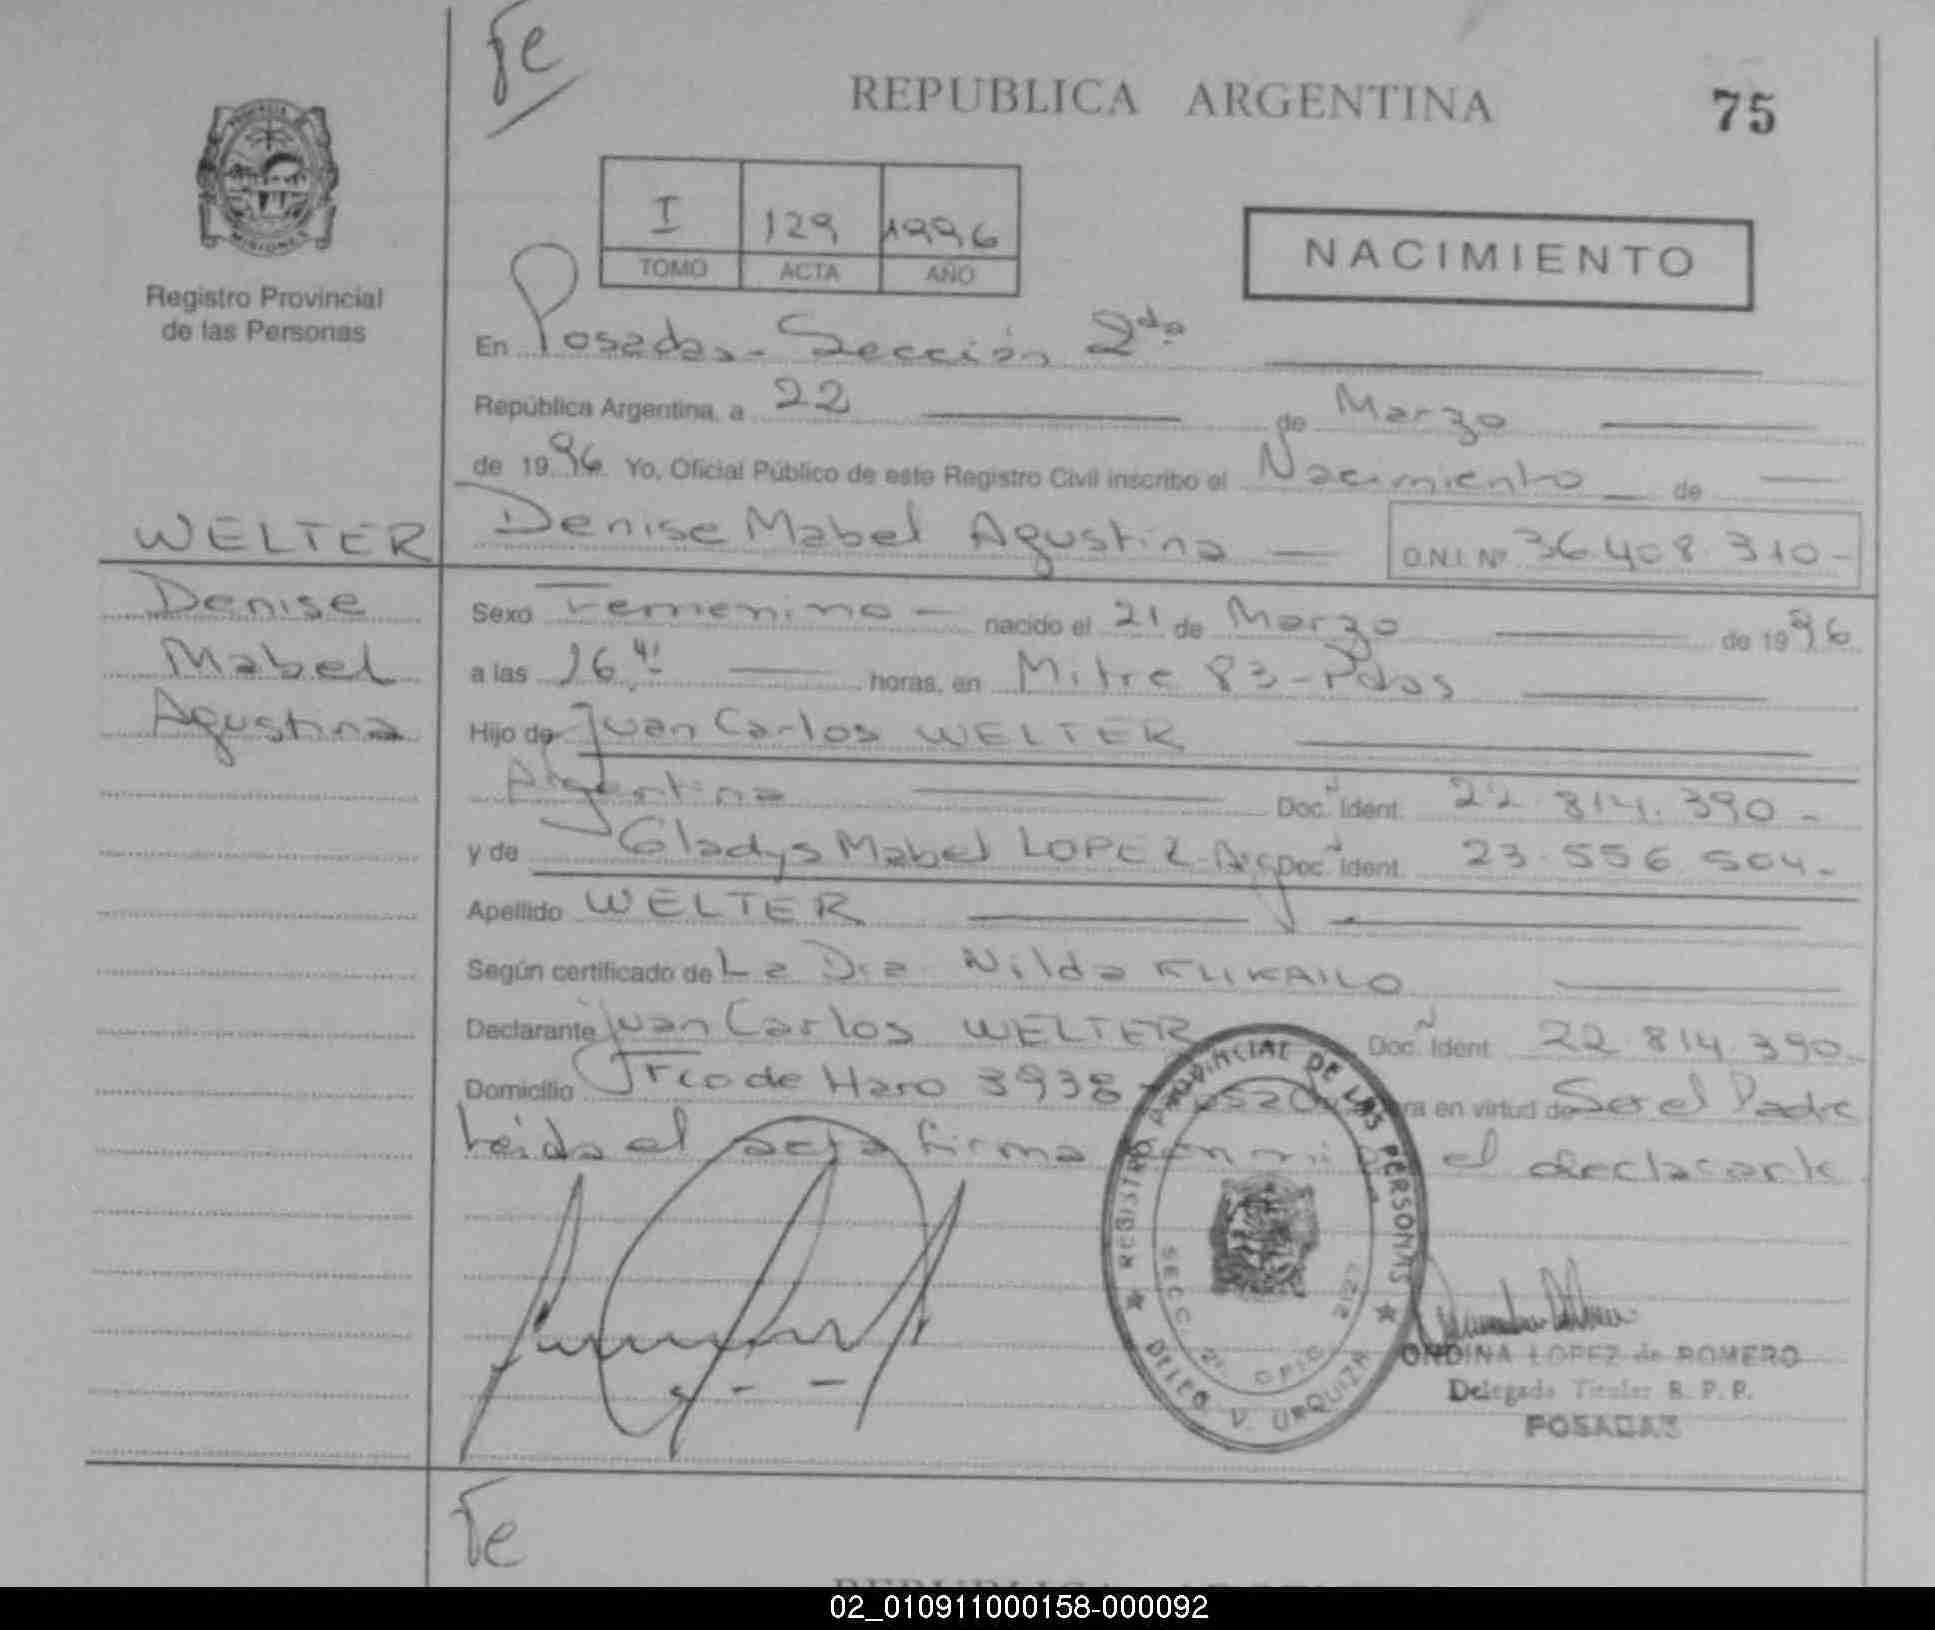 Fe
REPUBLICA ARGENTINA
75
MISIONES
Registro Provincial
de las Personas
I 129 1996
TOMO ACTA AÑO
NACIMIENTO
En Posadas - Sección 2da
República Argentina, a 22 de Marzo
de 1996 Yo, Oficial Público de este Registro Civil inscribo el Nacimiento de
WELTER
Denise
Mabel
Agustina
Denise Mabel Agustina D.N.I. Nº 36.408.310-
Sexo Femenino - nacido el 21 de Marzo de 1996
a las 16.41 horas, en Mitre 83 - Pdas
Hijo de Juan Carlos WELTER
Argentina Doc. Ident. 22.814.390-
y de Gladys Mabel LOPEZ - Arg Doc. Ident. 23.556.504-
Apellido WELTER
Según certificado de La Dra. Nilda
Declarante Juan Carlos WELTER Doc. Ident. 22.814.390-
Domicilio Fco de Haro 3938 en virtud de Ser el Padre
Leida el acta firma el declarante
REGISTRO PROVINCIAL DE LAS PERSONAS
SECC. 2ª
URQUIZA
ONDINA LOPEZ de ROMERO
Delegada Titular R. P. P.
POSADAS
Fe
02_010911000158-000092